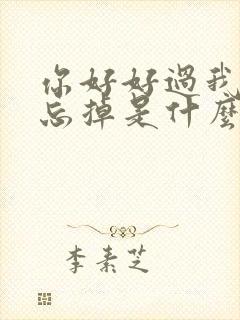 你好好過我
忘掉是什麼
李素芝